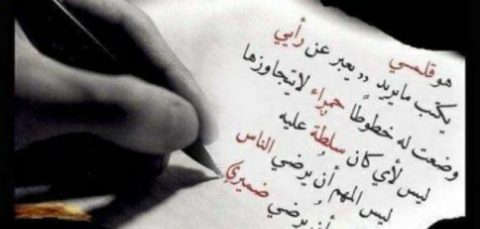 هو قلمي
يكتب ما يريد ,, يعبر عن رأيي
وضعت له خطوطًا حمراء لا يتجاوزها
ليس لأي كان سلطة عليه
ليس المهم أن يُرضي الناس
أن يرضي ضميري